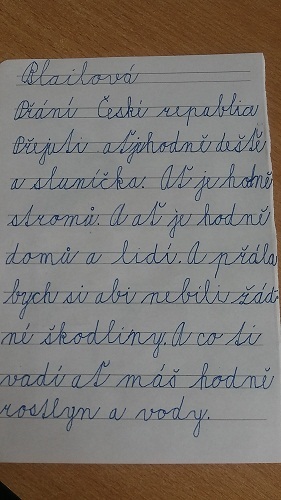 Blailová
Přání České repablia
Přeju ti aťjehodně deště
a sluníčka. Ať je hodně
stromů. A ať je hodně
domů a lidí. A přála
bych si abi nebili žád-
né škodliny. A co ti
vadí ať máš hodně
rostlyn a vody.